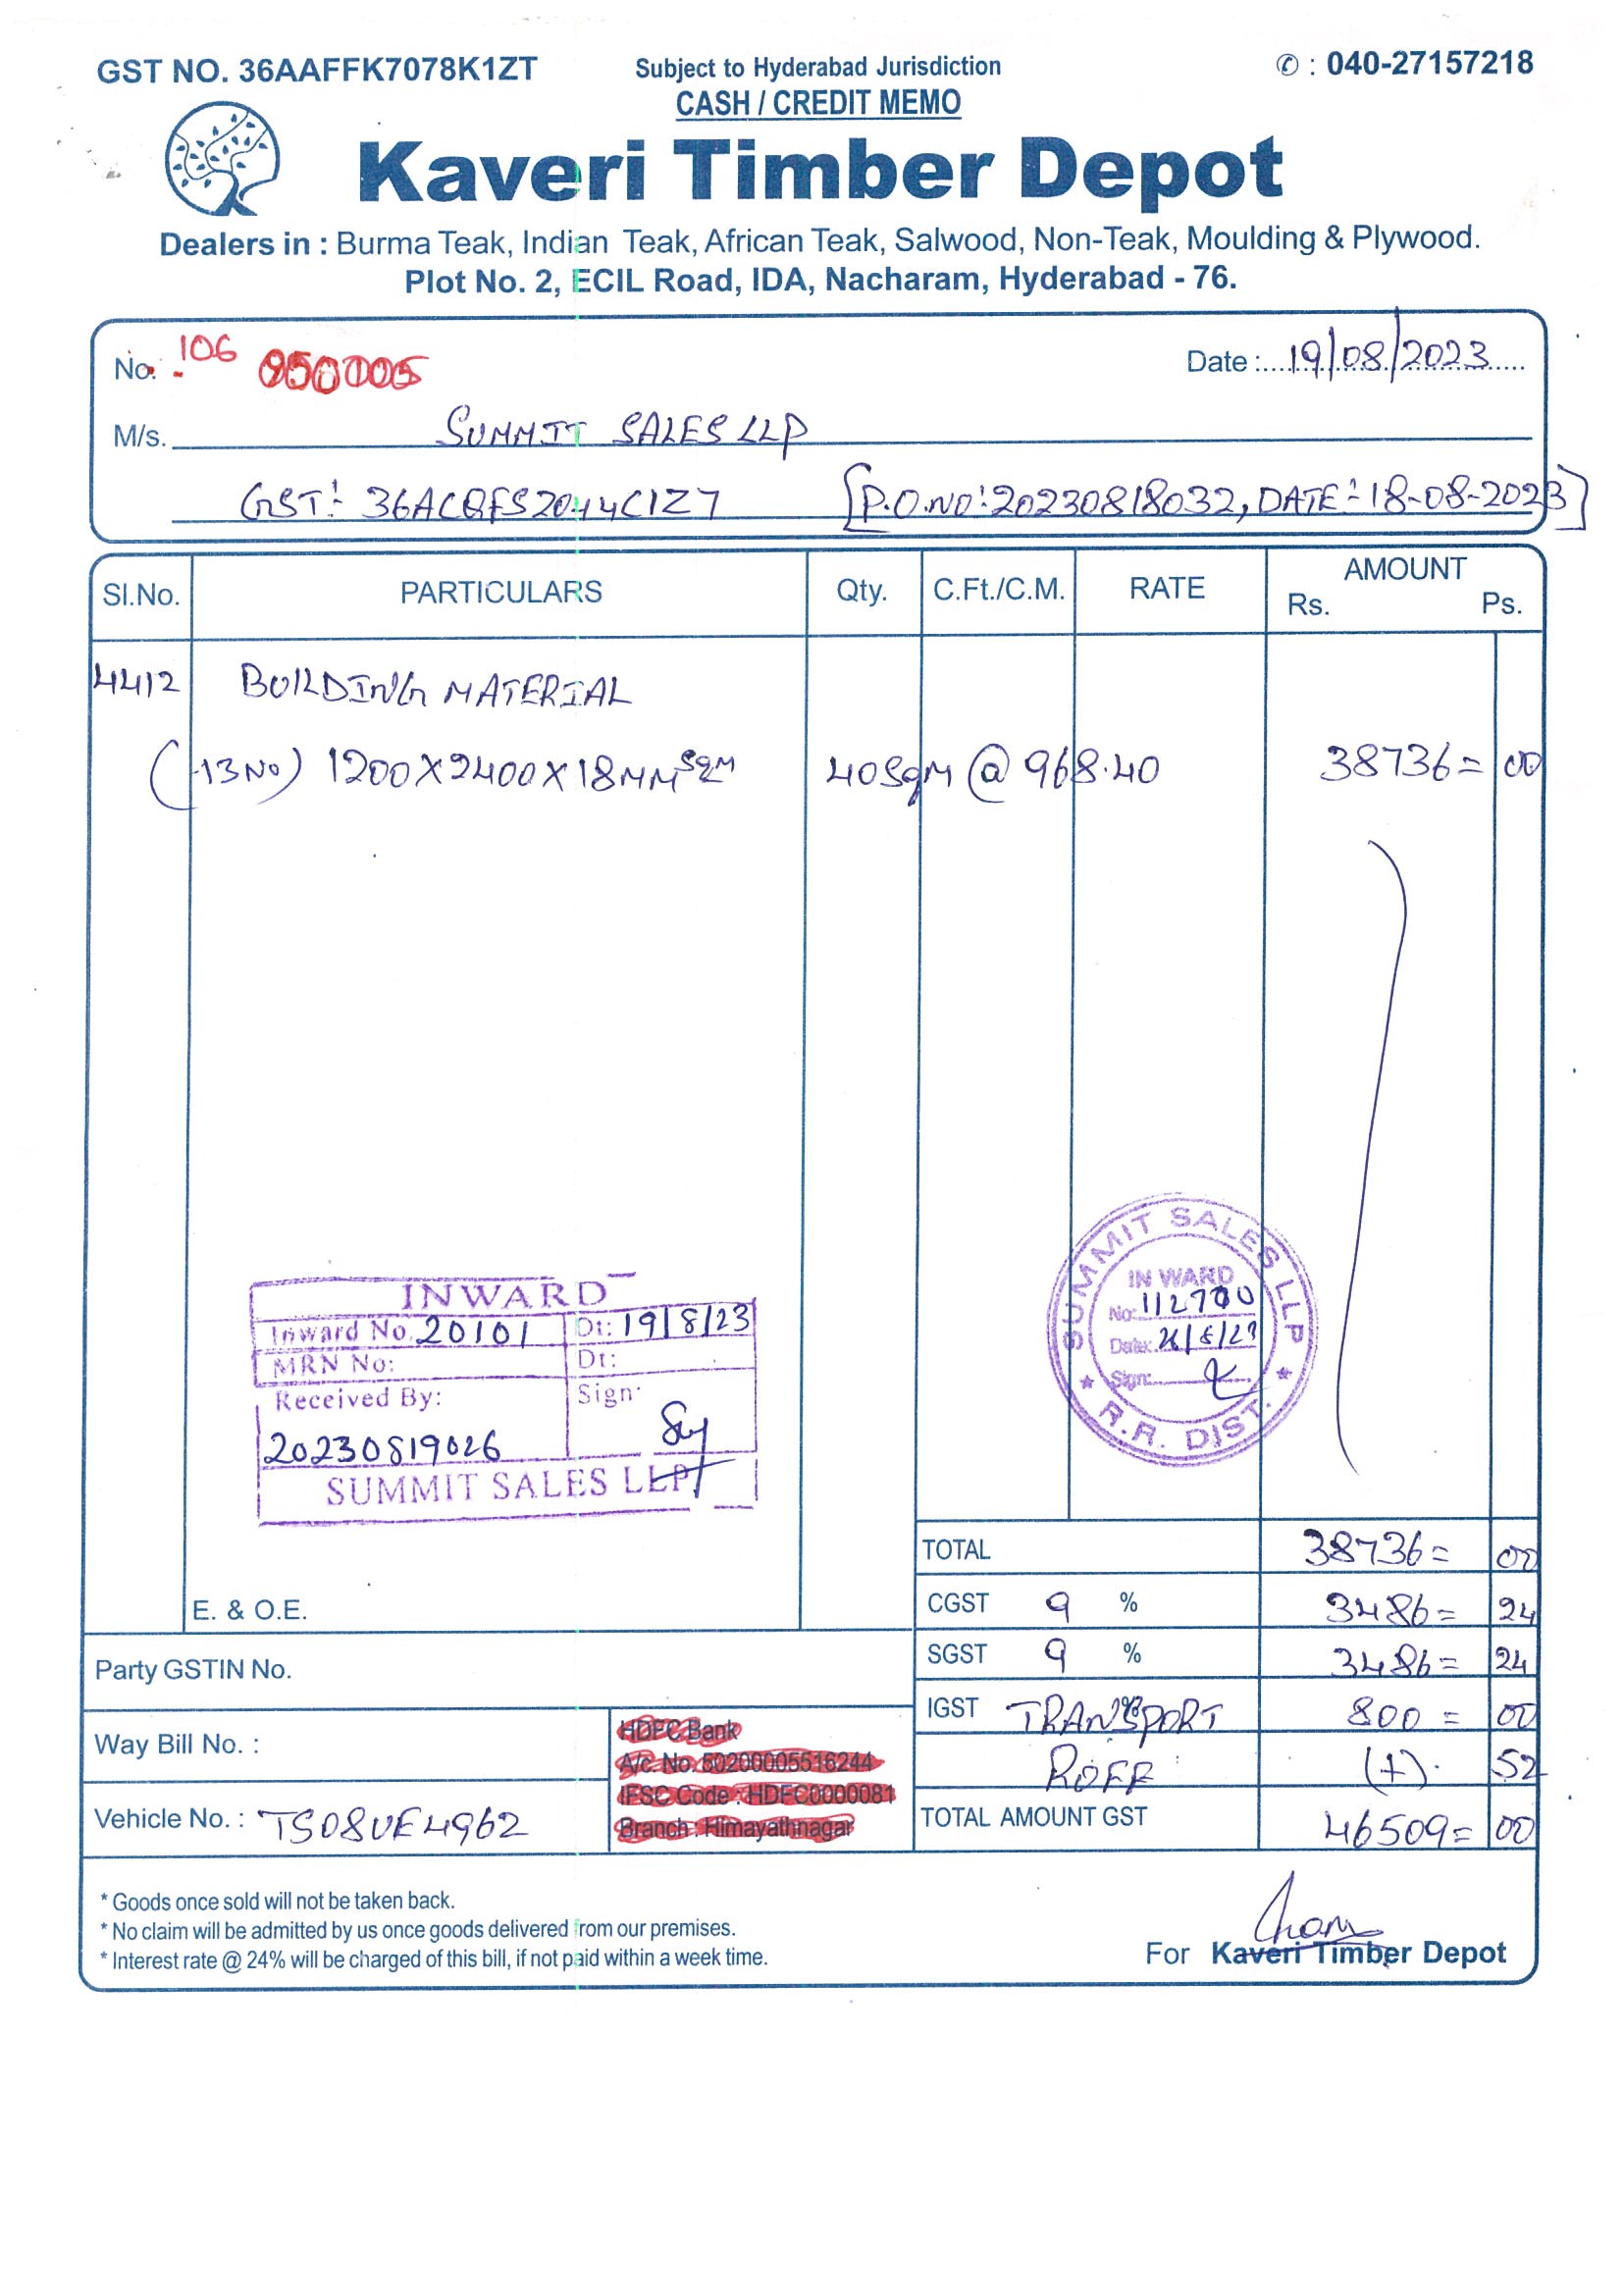 GST NO. 36AAFFK7078K1ZT Subject to Hyderabad Jurisdiction ✆ : 040-27157218
CASH / CREDIT MEMO
Kaveri Timber Depot
Dealers in : Burma Teak, Indian Teak, African Teak, Salwood, Non-Teak, Moulding & Plywood.
Plot No. 2, ECIL Road, IDA, Nacharam, Hyderabad - 76.
No. 106 Date : 19/08/2023
M/s. SUMMIT SALES LLP
GST:- 36ACQFS2044C1Z7 [P.O.NO:20230818032, DATE:-18-08-2023]
Sl.No. PARTICULARS Qty. C.Ft./C.M. RATE AMOUNT
Rs. Ps.
4412 BUILDING MATERIAL
(13 NO) 1200X2400X18MM SQM 40SqM @ 968.40 38736=00
INWARD
Inward No. 20101 Dt: 19/8/23
MRN No: Dt:
Received By: Sign:
20230819026
SUMMIT SALES LLP
SUMMIT SALES LLP
IN WARD
No: 112700
Date:
Sign:
★ R.R. DIST. ★
TOTAL 38736=00
E. & O.E.
CGST 9 % 3486=24
SGST 9 % 3486=24
Party GSTIN No.
IGST % TRANSPORT 800=00
Way Bill No. :
ROFF (+). 52
HDFC Bank
A/c. No. 50200005516244
IFSC Code : HDFC0000081
Branch : Himayathnagar
Vehicle No. : TS08UE4962
TOTAL AMOUNT GST 46509=00
* Goods once sold will not be taken back.
* No claim will be admitted by us once goods delivered from our premises.
* Interest rate @ 24% will be charged of this bill, if not paid within a week time.
For Kaveri Timber Depot